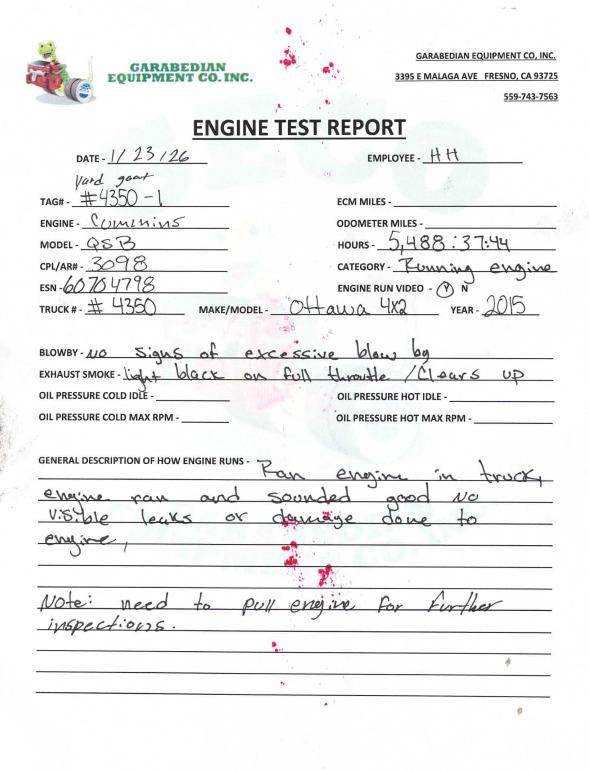 GARABEDIAN
EQUIPMENT CO. INC.
GARABEDIAN EQUIPMENT CO, INC.
3395 E MALAGA AVE FRESNO, CA 93725
559-743-7563
ENGINE TEST REPORT
DATE - 1/23/26 EMPLOYEE - HH
Yard goat
TAG# - #4350-1 ECM MILES -
ENGINE - Cummins ODOMETER MILES -
MODEL - QSB HOURS - 5,488:37:44
CPL/AR# - 3098 CATEGORY - Running engine
ESN - 60704798 ENGINE RUN VIDEO - Y N
TRUCK # - # 4350 MAKE/MODEL - Ottawa 4X2 YEAR - 2015
BLOWBY - NO signs of excessive blow by
EXHAUST SMOKE - light black on full throttle / Clears up
OIL PRESSURE COLD IDLE - OIL PRESSURE HOT IDLE -
OIL PRESSURE COLD MAX RPM - OIL PRESSURE HOT MAX RPM -
GENERAL DESCRIPTION OF HOW ENGINE RUNS - Ran engine in truck,
engine ran and sounded good NO
visible leaks or damage done to
engine,
Note: need to pull engine for further
inspections.